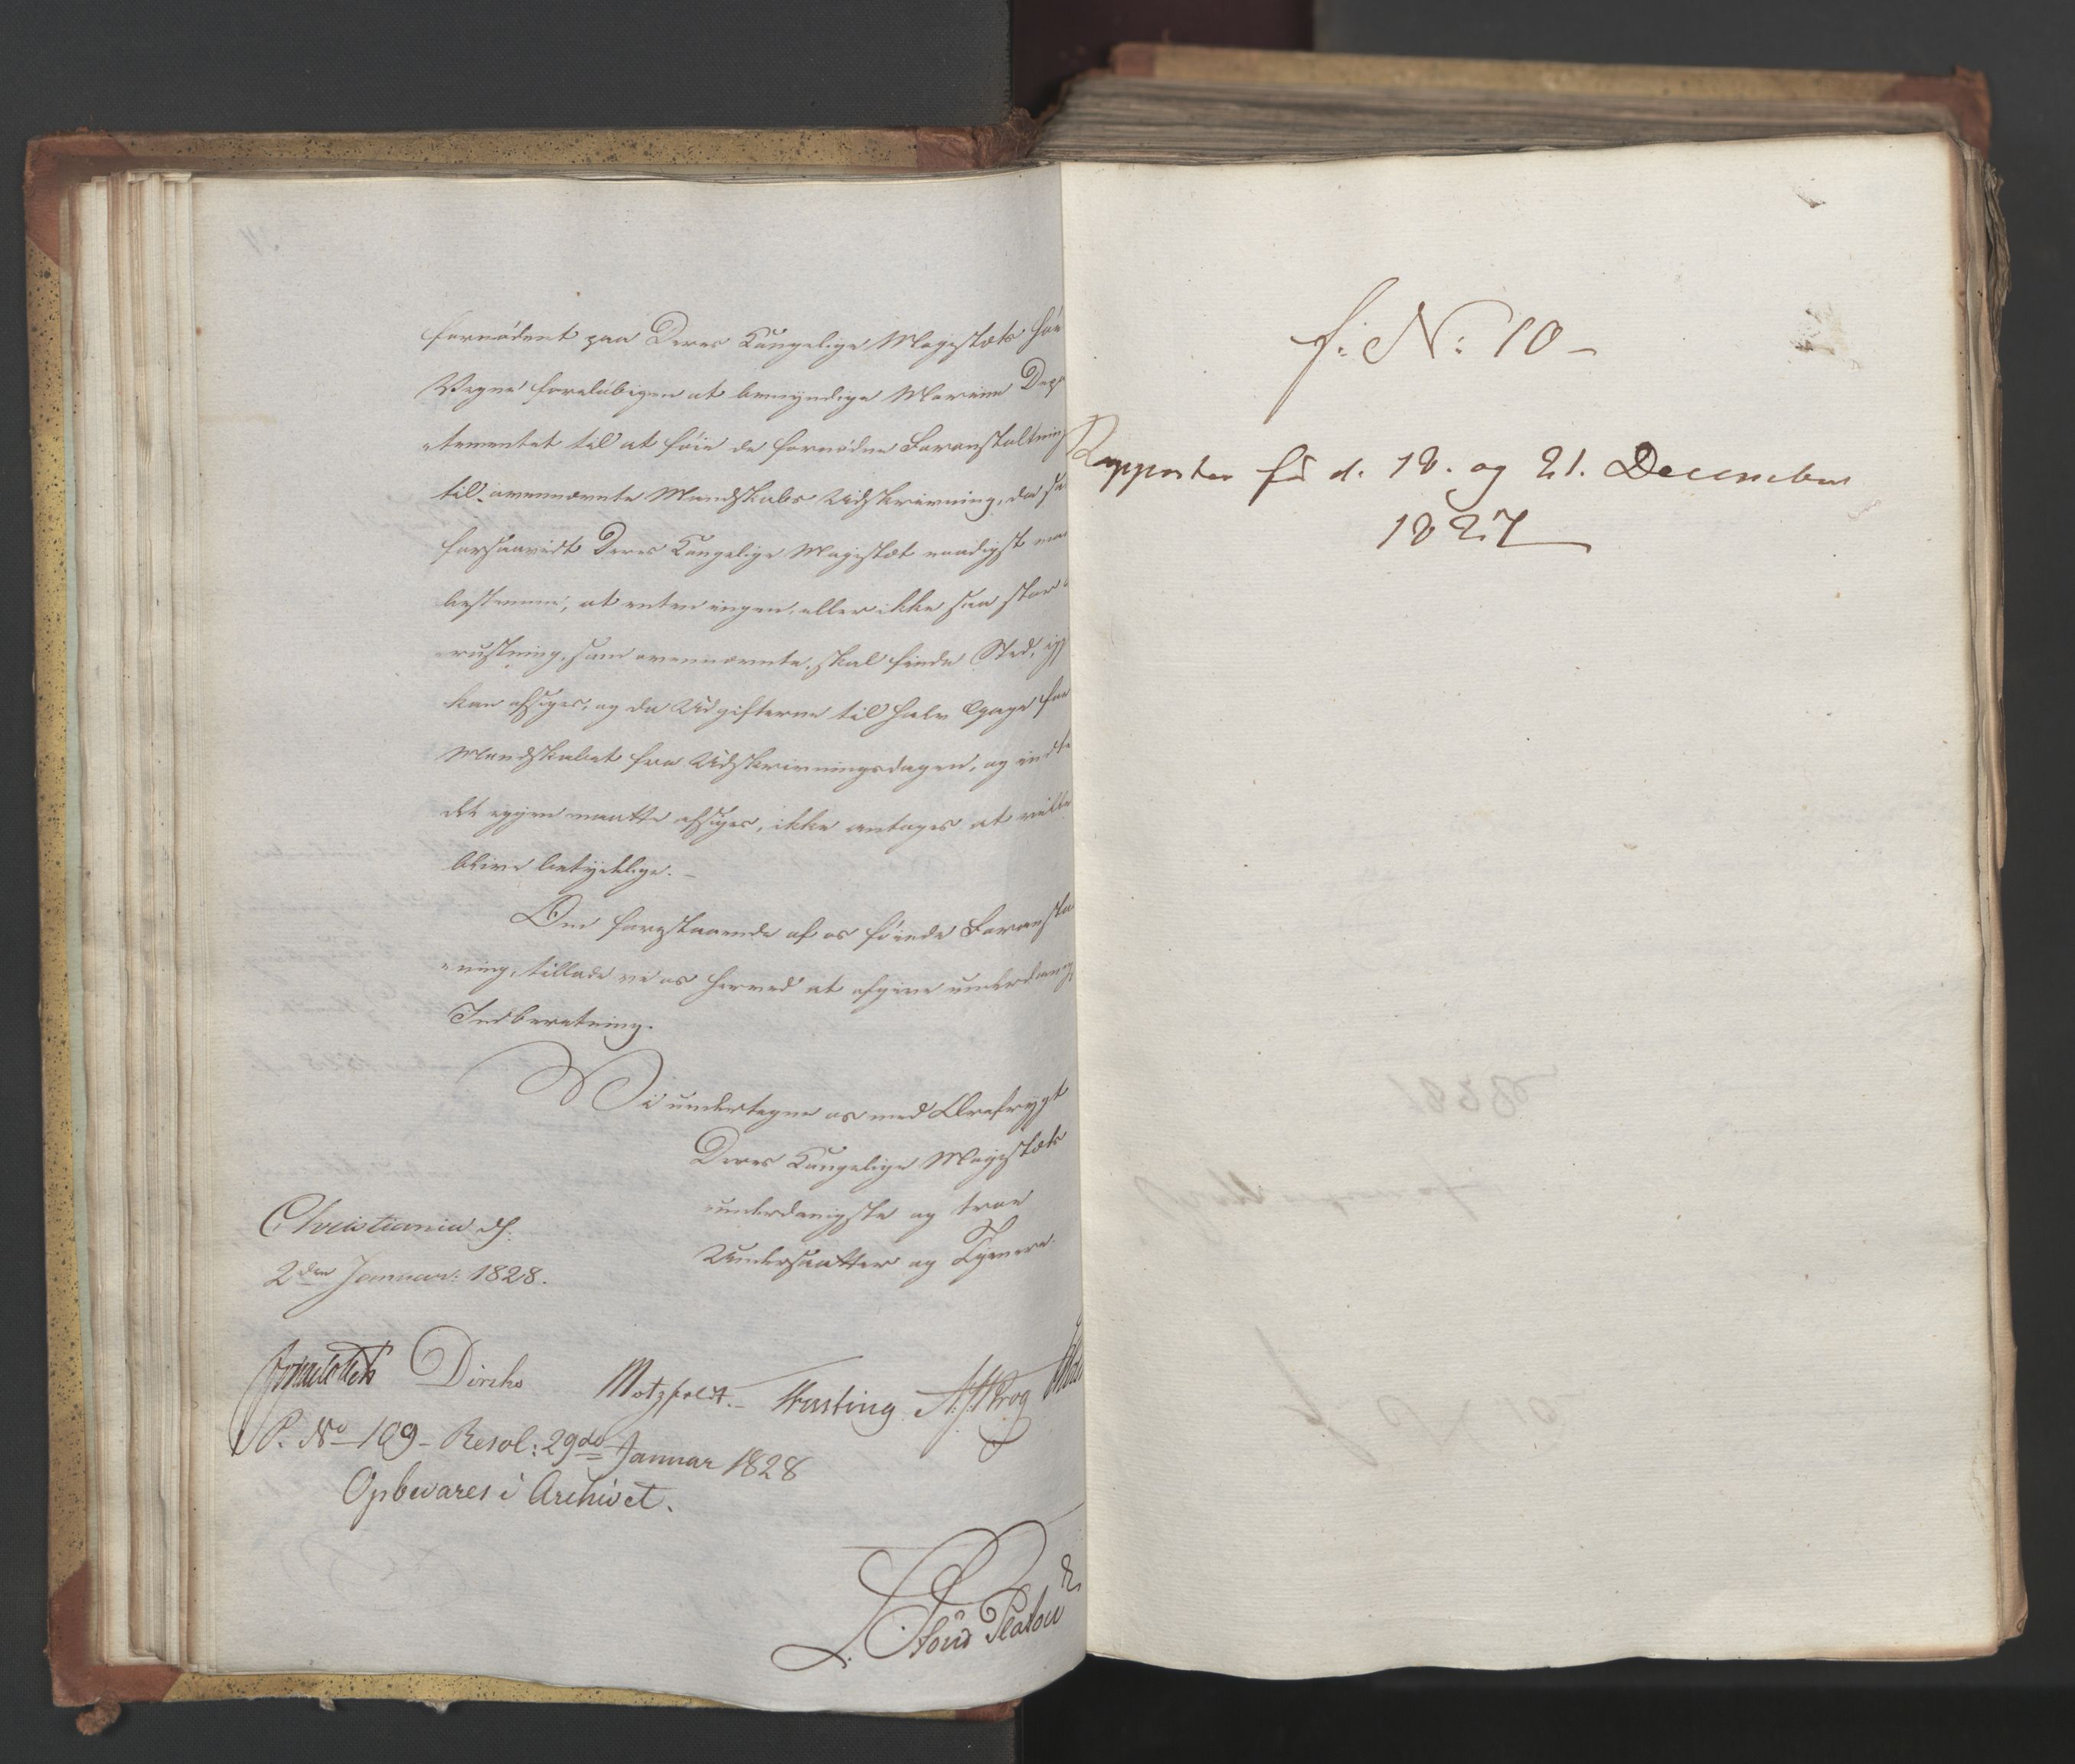 fornødent paa Deres Kongelige Majestæts høie
Vegne foreløbigen at bemyndige Marine Dep
-tementet til at føie de fornødne Foranstaltning
til ovennævnte Mandskabs Udskrivning, da
forsaavidt Deres Kongelige Majestæt naadigst maa
bestemme, at enten ingen, eller ikke saa stor
-rustning, som ovennævnte, skal finde Sted,
kan afsiges, og da Udgifterne til halv Gage for
Mandskabet fra Udskrivningsdagen, og indtil
det igjen maatte afsiges, ikke antages at ville
blive betydelige. –
Om forestaaende af os føiede Foransta
-ning, tillade vi os herved at afgive underdanig
Indberetning.
Vi undertegne os med Ærefrygt
Deres Kongelige Majestæts
underdanigste og troe
Undersaatter og Tjenere.
Christiania d.
2den Januar: 1828.
Diriks Motzfeldt. Fasting A. Krog
P. No 109 – Resol: 29de Januar 1828
Opbevares i Archivet.
L. Stoud Platou
f: N: 10 –
Rapporter for d. 18. og 21. December
1827